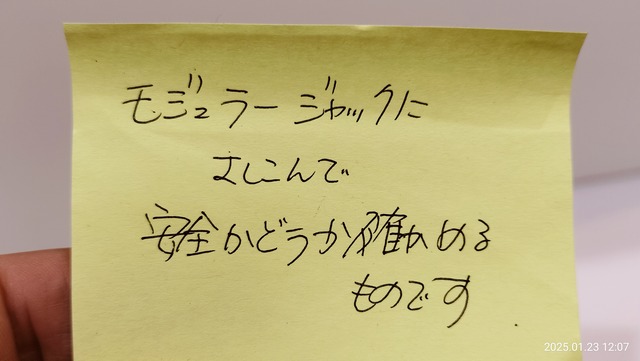 モジュラージャックに
さしこんで
安全かどうか確かめる
ものです
2025.01.23 12:07